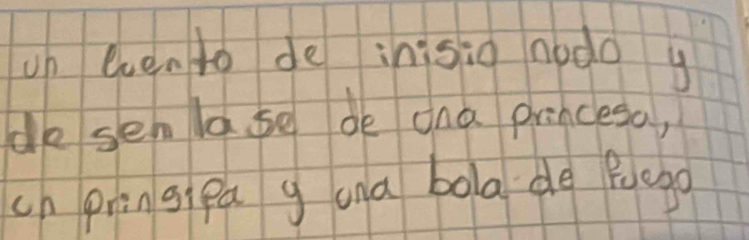 un cuento de inisio nodo y
de sen la se de una princesa,
un prinsipa y una bola de fuego